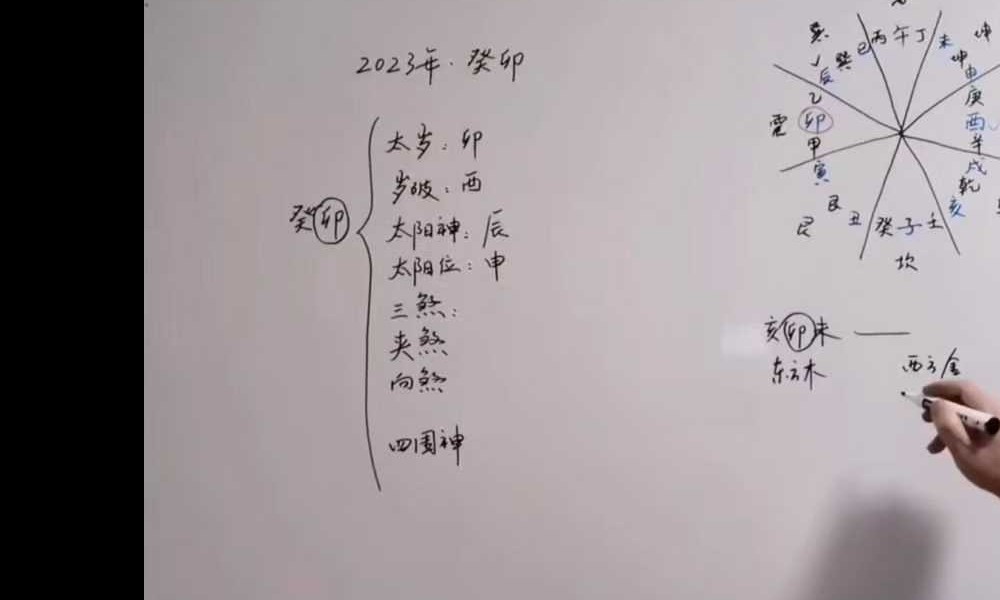 2023年·癸卯
癸卯
太岁：卯
岁破：酉
太阳神：辰
太阳位：申
三煞：
夹煞
向煞
四围神
巳丙午丁未
坤
坤
申
庚
酉
辛
戌
乾
亥
巽
辰
乙
震 卯
甲
寅
艮
艮 丑
癸子壬
坎
亥卯未 ——
东方木
西方金